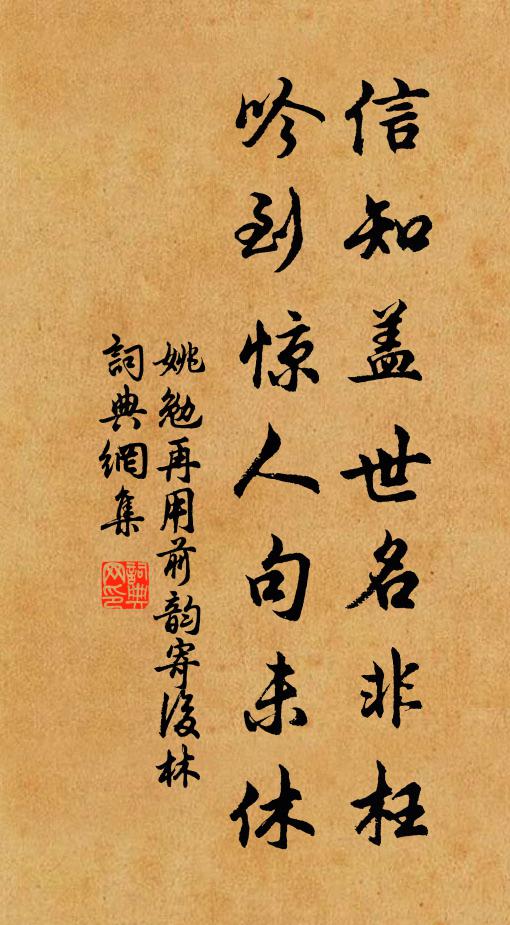 信知盖世名非枉
吟到惊人句未休
姚勉再用前韵寄后林
詞典網集
詞典网印